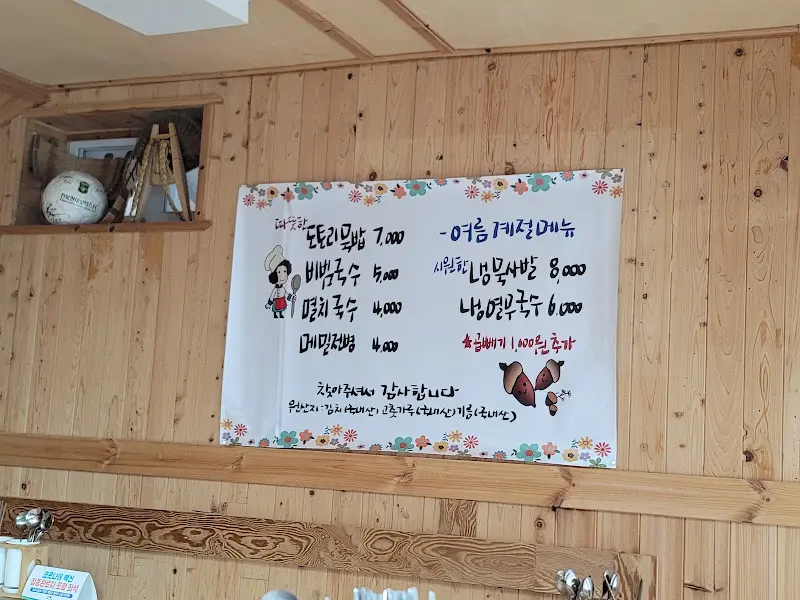 따뜻한 도토리묵밥 7,000
비빔국수 5,000
멸치국수 4,000
메밀전병 4,000
-여름계절메뉴
시원한 냉묵사발 8,000
냉열무국수 6,000
☆곱빼기 1,000원추가
찾아주셔서 감사합니다
원산지:김치(국내산) 고춧가루(국내산)기름(국내산)
코로나19 백신